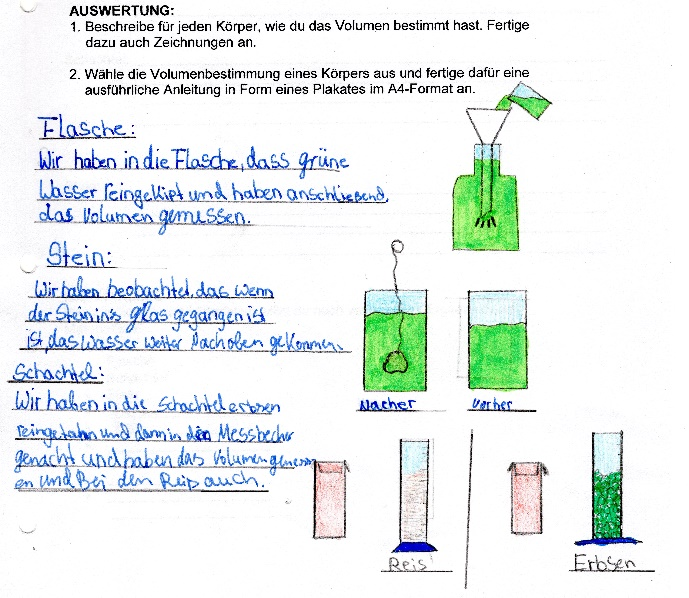 AUSWERTUNG:
1. Beschreibe für jeden Körper, wie du das Volumen bestimmt hast. Fertige
dazu auch Zeichnungen an.
2. Wähle die Volumenbestimmung eines Körpers aus und fertige dafür eine
ausführliche Anleitung in Form eines Plakates im A4-Format an.
Flasche:
Wir haben in die Flasche, dass grüne
Wasser reingekipt und haben anschließend,
das Volumen gemessen.
Stein:
Wir haben beobachtet, das wenn
der Stein in's glas gegangen ist
ist, das Wasser weiter nach oben gekommen.
Nacher
Vorher
Schachtel:
Wir haben in die Schachtel erbsen
reingetahn und dann in den Messbecher
gemacht und haben das Volumen gemess
en und Bei den Reis auch.
Reis
Erbsen